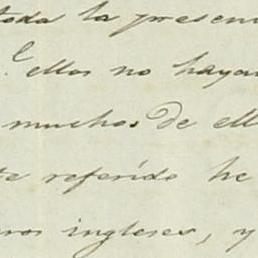 toda la presen
ellos no hayan
muchos de ell
te referido he
ros ingleses, y